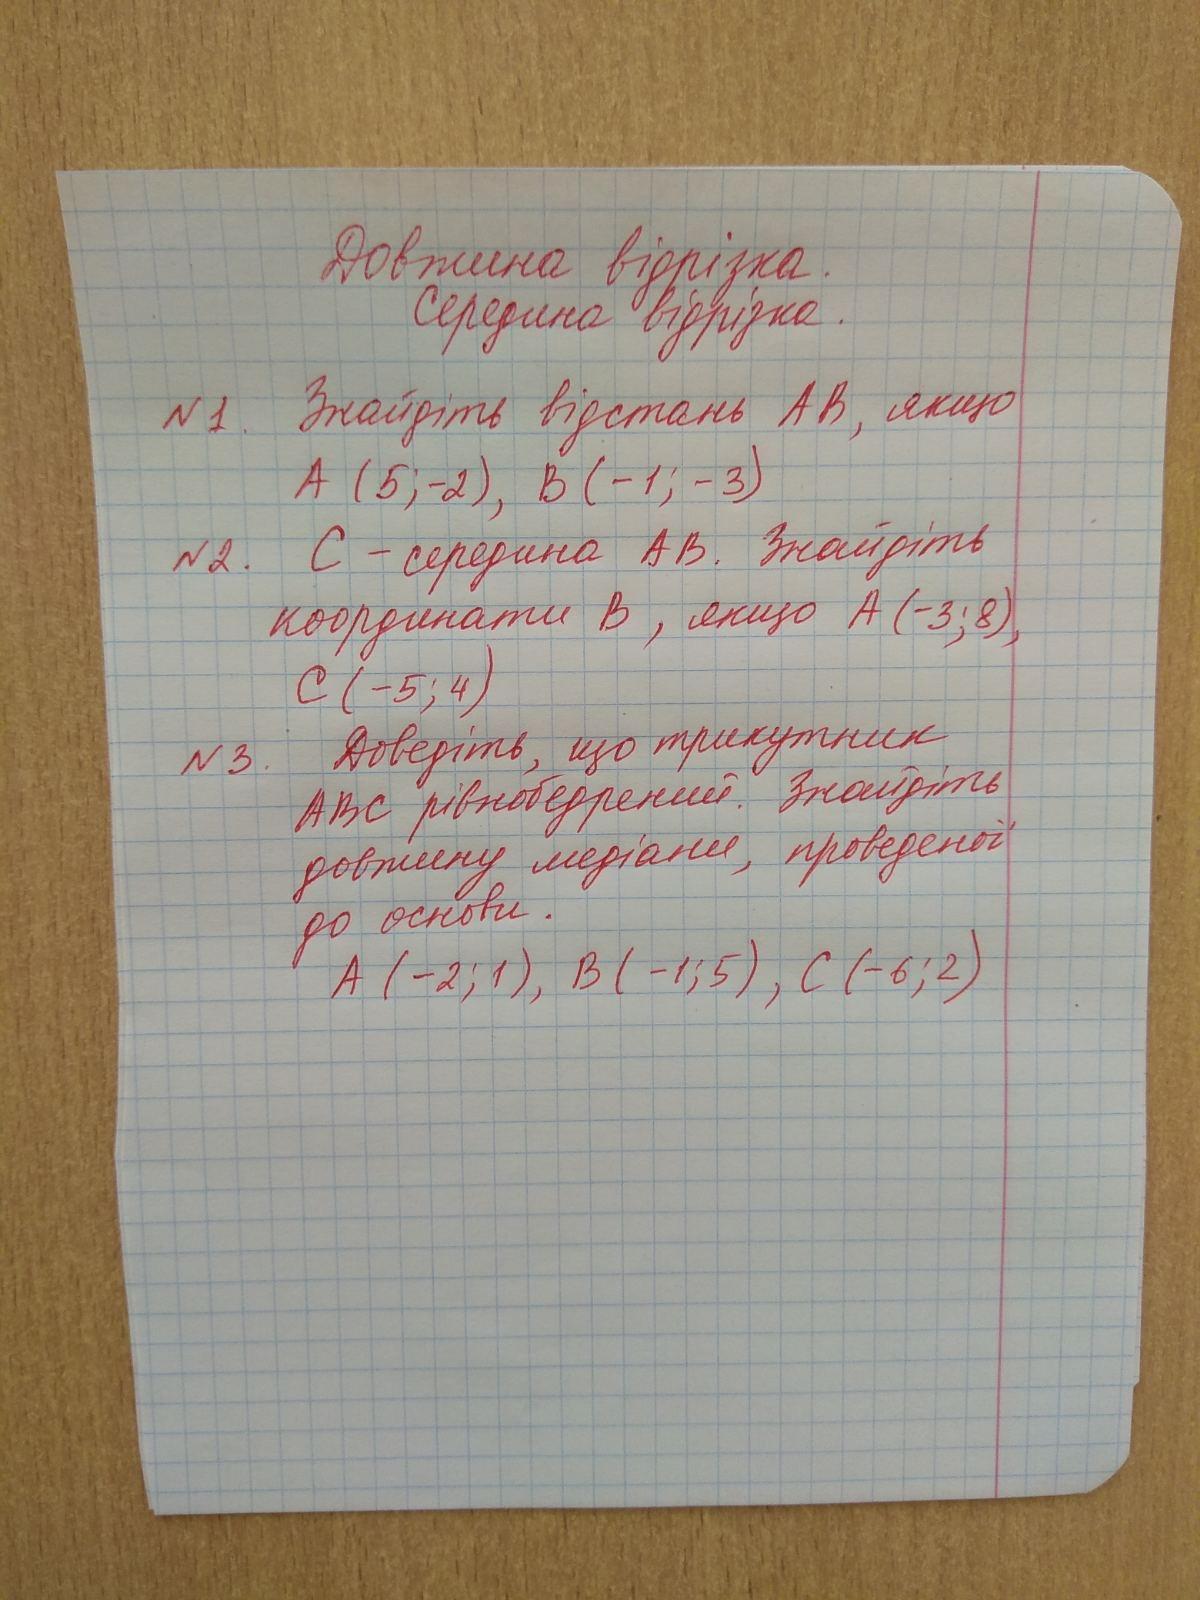 Довжина відрізка.
Середина відрізка.
N1. Знайдіть відстань AB, якщо
A (5;-2), B (-1; -3)
N2. C - середина AB. Знайдіть
координати B, якщо A (-3;8),
C (-5; 4)
N3. Доведіть, що трикутник
ABC рівнобедрений. Знайдіть
довжину медіани, проведеної
до основи.
A (-2; 1), B (-1; 5), C (-6; 2)